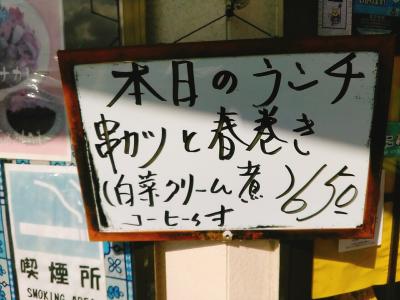 本日のランチ
串カツと春巻き
(白菜クリーム煮) 650
コーヒー
喫煙所
SMOKING AREA